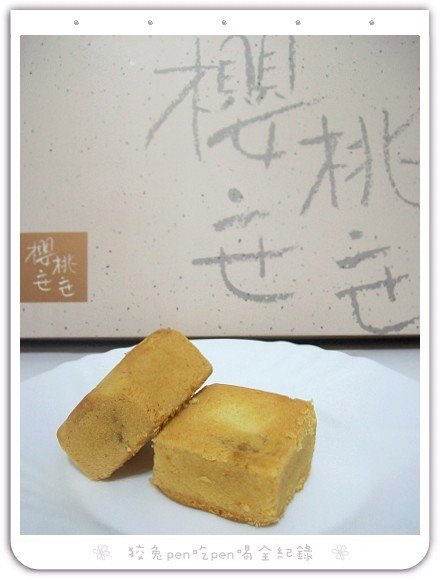 櫻桃
櫻桃
狡兔pen吃pen喝全紀錄